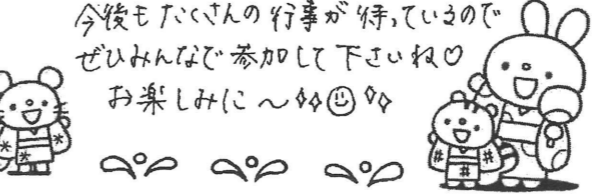 今後もたくさんの行事が待っているので
ぜひみんなで参加して下さいね♡
お楽しみに〜